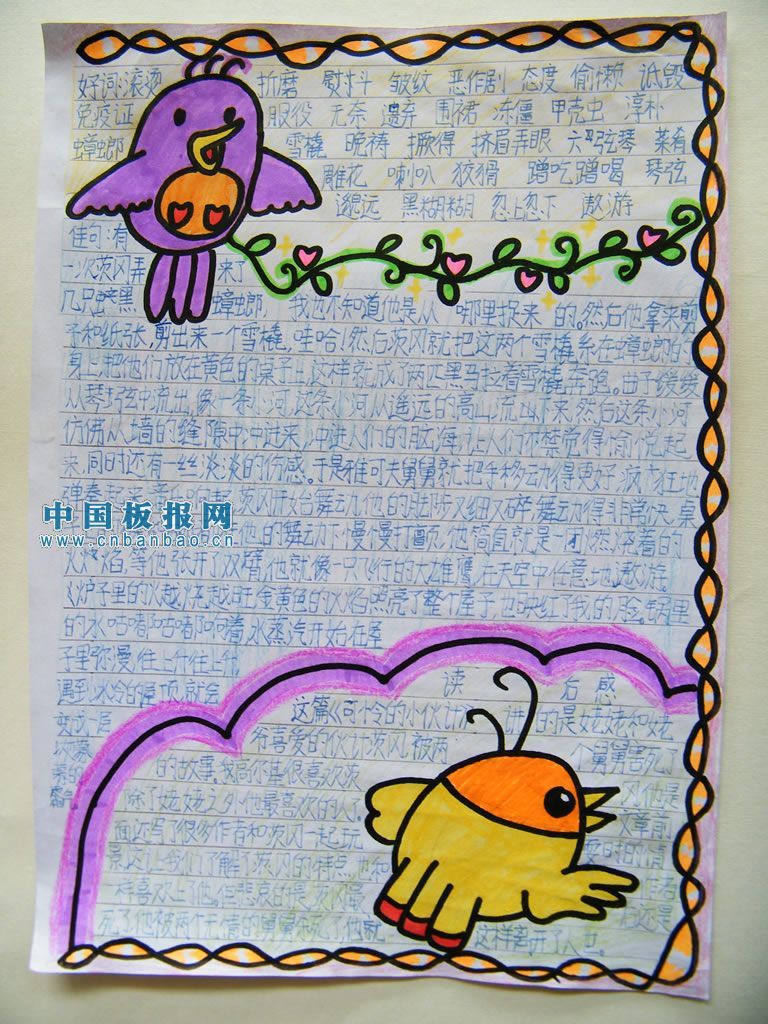 好词:滚烫 折磨 熨斗 皱纹 恶作剧 态度 偷懒 诋毁
免疫证 服役 无奈 遗弃 围裙 冻僵 甲壳虫 淳朴
蟑螂 雪橇 晚祷 撅得 挤眉弄眼 六弦琴 菜肴
雕花 喇叭 狡猾 蹭吃蹭喝 琴弦
遥远 黑糊糊 忽上忽下 遨游
佳句:有
一次茨冈弄 来了
几只 黑 蟑螂, 我也不知道他是从 哪里捉来 的。然后他拿来剪
子和纸张,剪出来一个雪橇,哇哈!然后茨冈就把这两个雪橇系在蟑螂的
身上,把他们放在黄色的桌子上,这样就成了两匹黑马拉着雪橇奔跑。曲子缓缓
从琴弦中流出,像一条小河,这条小河从遥远的高山流下来,然后这条小河
仿佛从墙的缝隙中冲进来,冲进人们的脑海,让人们不禁觉得愉悦起
来,同时还有一丝淡淡的伤感。于是雅可夫舅舅就把手移动得更好,疯狂地
弹奏起 茨冈开始舞动,他的脚步又细又碎,舞动得非常快,桌
中国板报网
www.cnbanbao.cn
他的舞动下慢慢打 他简直就是 燃烧着的
火焰,等他张开了双臂,他就像一只飞行的大雄鹰在天空中任意地遨游。
火炉子里的火越烧越旺,金黄色的火焰照亮了整个屋子,也映红了我的脸。锅里
的水咕嘟咕嘟响着,水蒸汽开始在屋
子里弥漫,往上升往上
遇到冰冷的屋顶就会
变成一层
读 后 感
这篇《司令的小伙计》 讲的是姥姥和姥
爷喜爱的伙计茨冈被两 个舅舅害死
的故事,我 很喜欢茨
冈,他是
除了姥姥之外,他最喜欢的人。 文章前
面还写了很多作者和茨冈一起玩 耍的
景,这让我们了解了茨冈的特点,也和 作者
一样喜欢上了他。但悲哀的是,茨冈最 后还是
死了,他被两个无情的舅舅 了,他就 这样离开了人世。